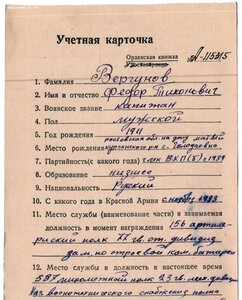 Учетная карточка
Орденская книжка
А-115315
1. Фамилия Вергунов
2. Имя и отчество Федор Тихонович
3. Воинское звание капитан
4. Пол мужской
5. Год рождения 1911
6. Место рождения
7. Партийность (с какого года) член ВКП(б) 1939
8. Образование низшее
9. Национальность Русский
10. С какого года в Красной Армии с
11. Место службы (наименование части) и занимаемая
должность в момент награждения 156 артиле
рийский полк 77 гв. стр. дивизии
зам. по строевой ком. батареи
12. Место службы и должность в настоящее время
полк 23 гв.